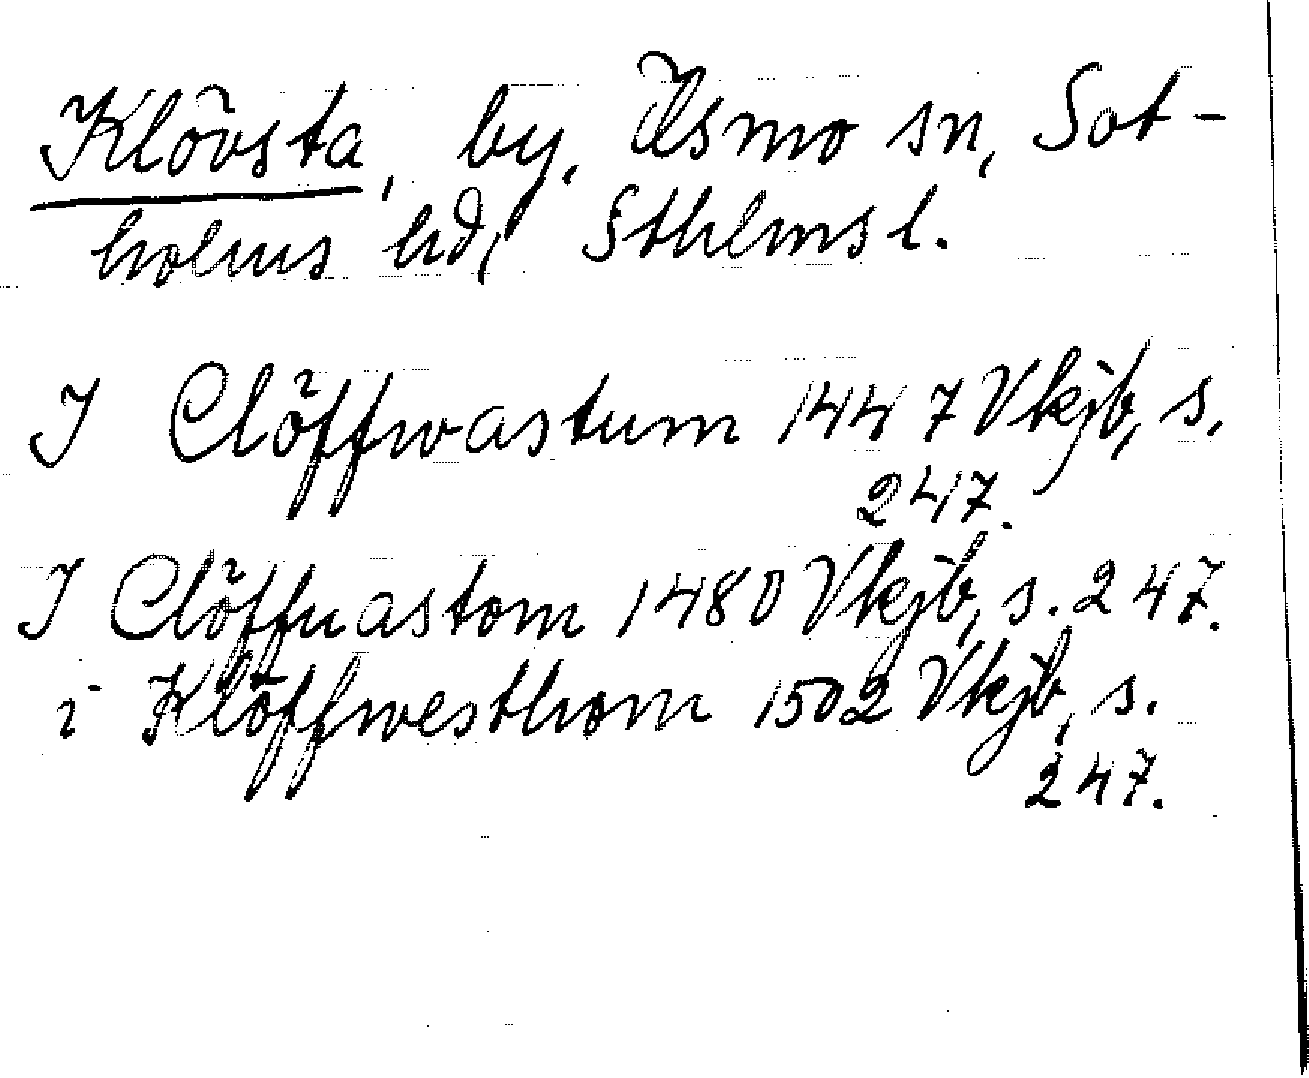 Klövsta, by, Ösmo sn, Sot-
holms hd, Sthlms l.
I Clöffwastum 1447 Vkjb, s.
247.
I Clöffuastom 1480 Vkjb, s. 247.
i Klöffwesthom 1502 Vkjb, s.
247.